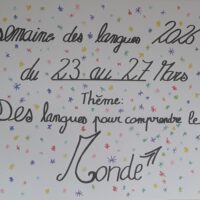 Semaine des langues 2026
du 23 au 27 Mars
Thème:
Des langues pour comprendre le
Monde